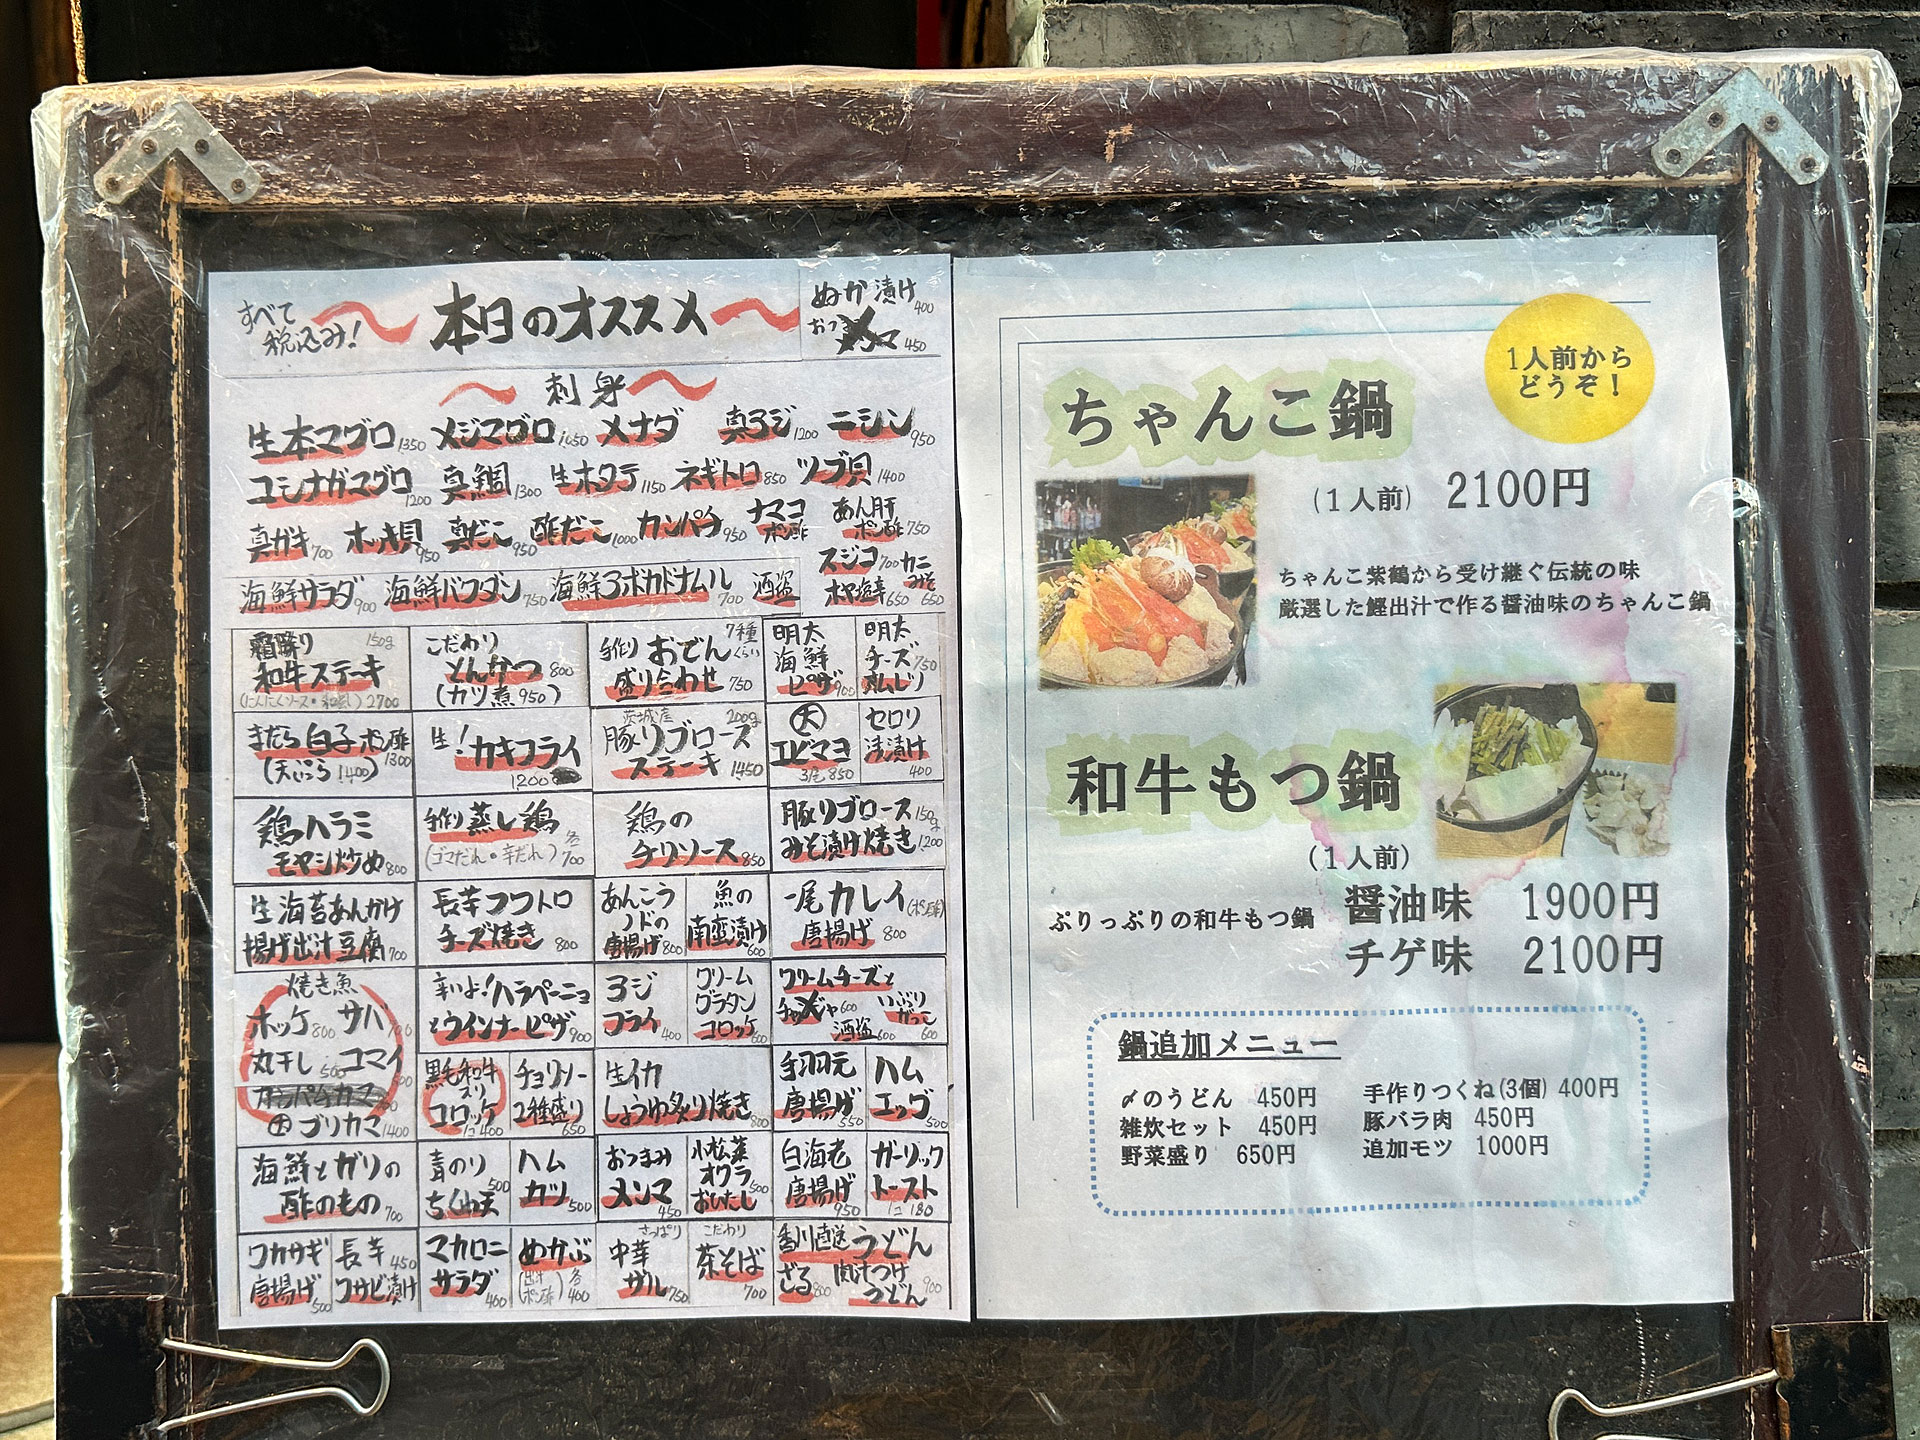 すべて
税込み!
本日のオススメ
ぬか漬け 400
450
刺身
生本マグロ 1350 メジマグロ メナダ 真アジ 1200 ニシン 950
コシナガマグロ 1200 真鯛 1300 生ホタテ 1150 ネギトロ 850 ツブ貝 1400
真ガキ 700 ホッキ貝 950 真だこ 950 酢だこ 1000 カンパチ 950 ナマコ ポン酢 あん肝 ポン酢 750
スジコ 700 カニみそ 650
ホヤ塩辛 650
海鮮サラダ 900 海鮮バクダン 750 海鮮アボカドナムル 700 酒盗
霜降り 150g
和牛ステーキ
2700
こだわり
とんかつ 800
(カツ煮 950)
手作り おでん 7種くらい
盛り合わせ 750
明太
海鮮
ピザ 900
明太
チーズ 750
丸ムじリ
まだら白子ポン酢 1300
(天ぷら 1400)
生!カキフライ
1200
茨城産 200g
豚リブロース
ステーキ 1450
大
エビマヨ
3尾 850
セロリ
浅漬け
400
鶏ハラミ
モヤシ炒め 800
手作り 蒸し鶏
(ゴマだれ・辛だれ) 各700
鶏の
チリソース 850
豚リブロース 150g
みそ漬け焼き 1200
生海苔あんかけ
揚げ出汁豆腐 700
長芋フワトロ
チーズ焼き 800
あんこう
ノドの
唐揚げ 800
魚の
南蛮漬け
600
一尾カレイ (ポン酢)
唐揚げ 800
焼き魚
ホッケ 800 サバ 700
丸干し 500 コマイ 500
大ブリカマ 1400
辛いよ!ハラペーニョ
とウインナーピザ 900
アジ
フライ 400
クリーム
グラタン
コロッケ 600
クリームチーズと
600
酒盗 600
いぶり
がっこ
600
黒毛和牛
スジ
コロッケ
1コ 400
チョリソー
2種盛り
650
生イカ
しょうゆ炙り焼き 800
手羽元
唐揚げ
550
ハム
エッグ
500
海鮮とガリの
酢のもの 700
青のり
ちくわ天 500
ハム
カツ 500
おつまみ
メンマ
450
小松菜
オクラ 500
おひたし
白海老
唐揚げ
950
ガーリック
トースト
1コ 180
ワカサギ
唐揚げ 500
長芋 450
ワサビ漬け
マカロニ
サラダ 400
めかぶ
(出汁 ポン酢) 各400
さっぱり
中華
ザル 750
こだわり
茶そば
700
香川直送 うどん
ざる 800 肉汁つけ
うどん 900
1人前から
どうぞ!
ちゃんこ鍋
(1人前) 2100円
ちゃんこ紫鶴から受け継ぐ伝統の味
厳選した鰹出汁で作る醤油味のちゃんこ鍋
和牛もつ鍋
(1人前)
ぷりっぷりの和牛もつ鍋 醤油味 1900円
チゲ味 2100円
鍋追加メニュー
〆のうどん 450円
雑炊セット 450円
野菜盛り 650円
手作りつくね(3個) 400円
豚バラ肉 450円
追加モツ 1000円